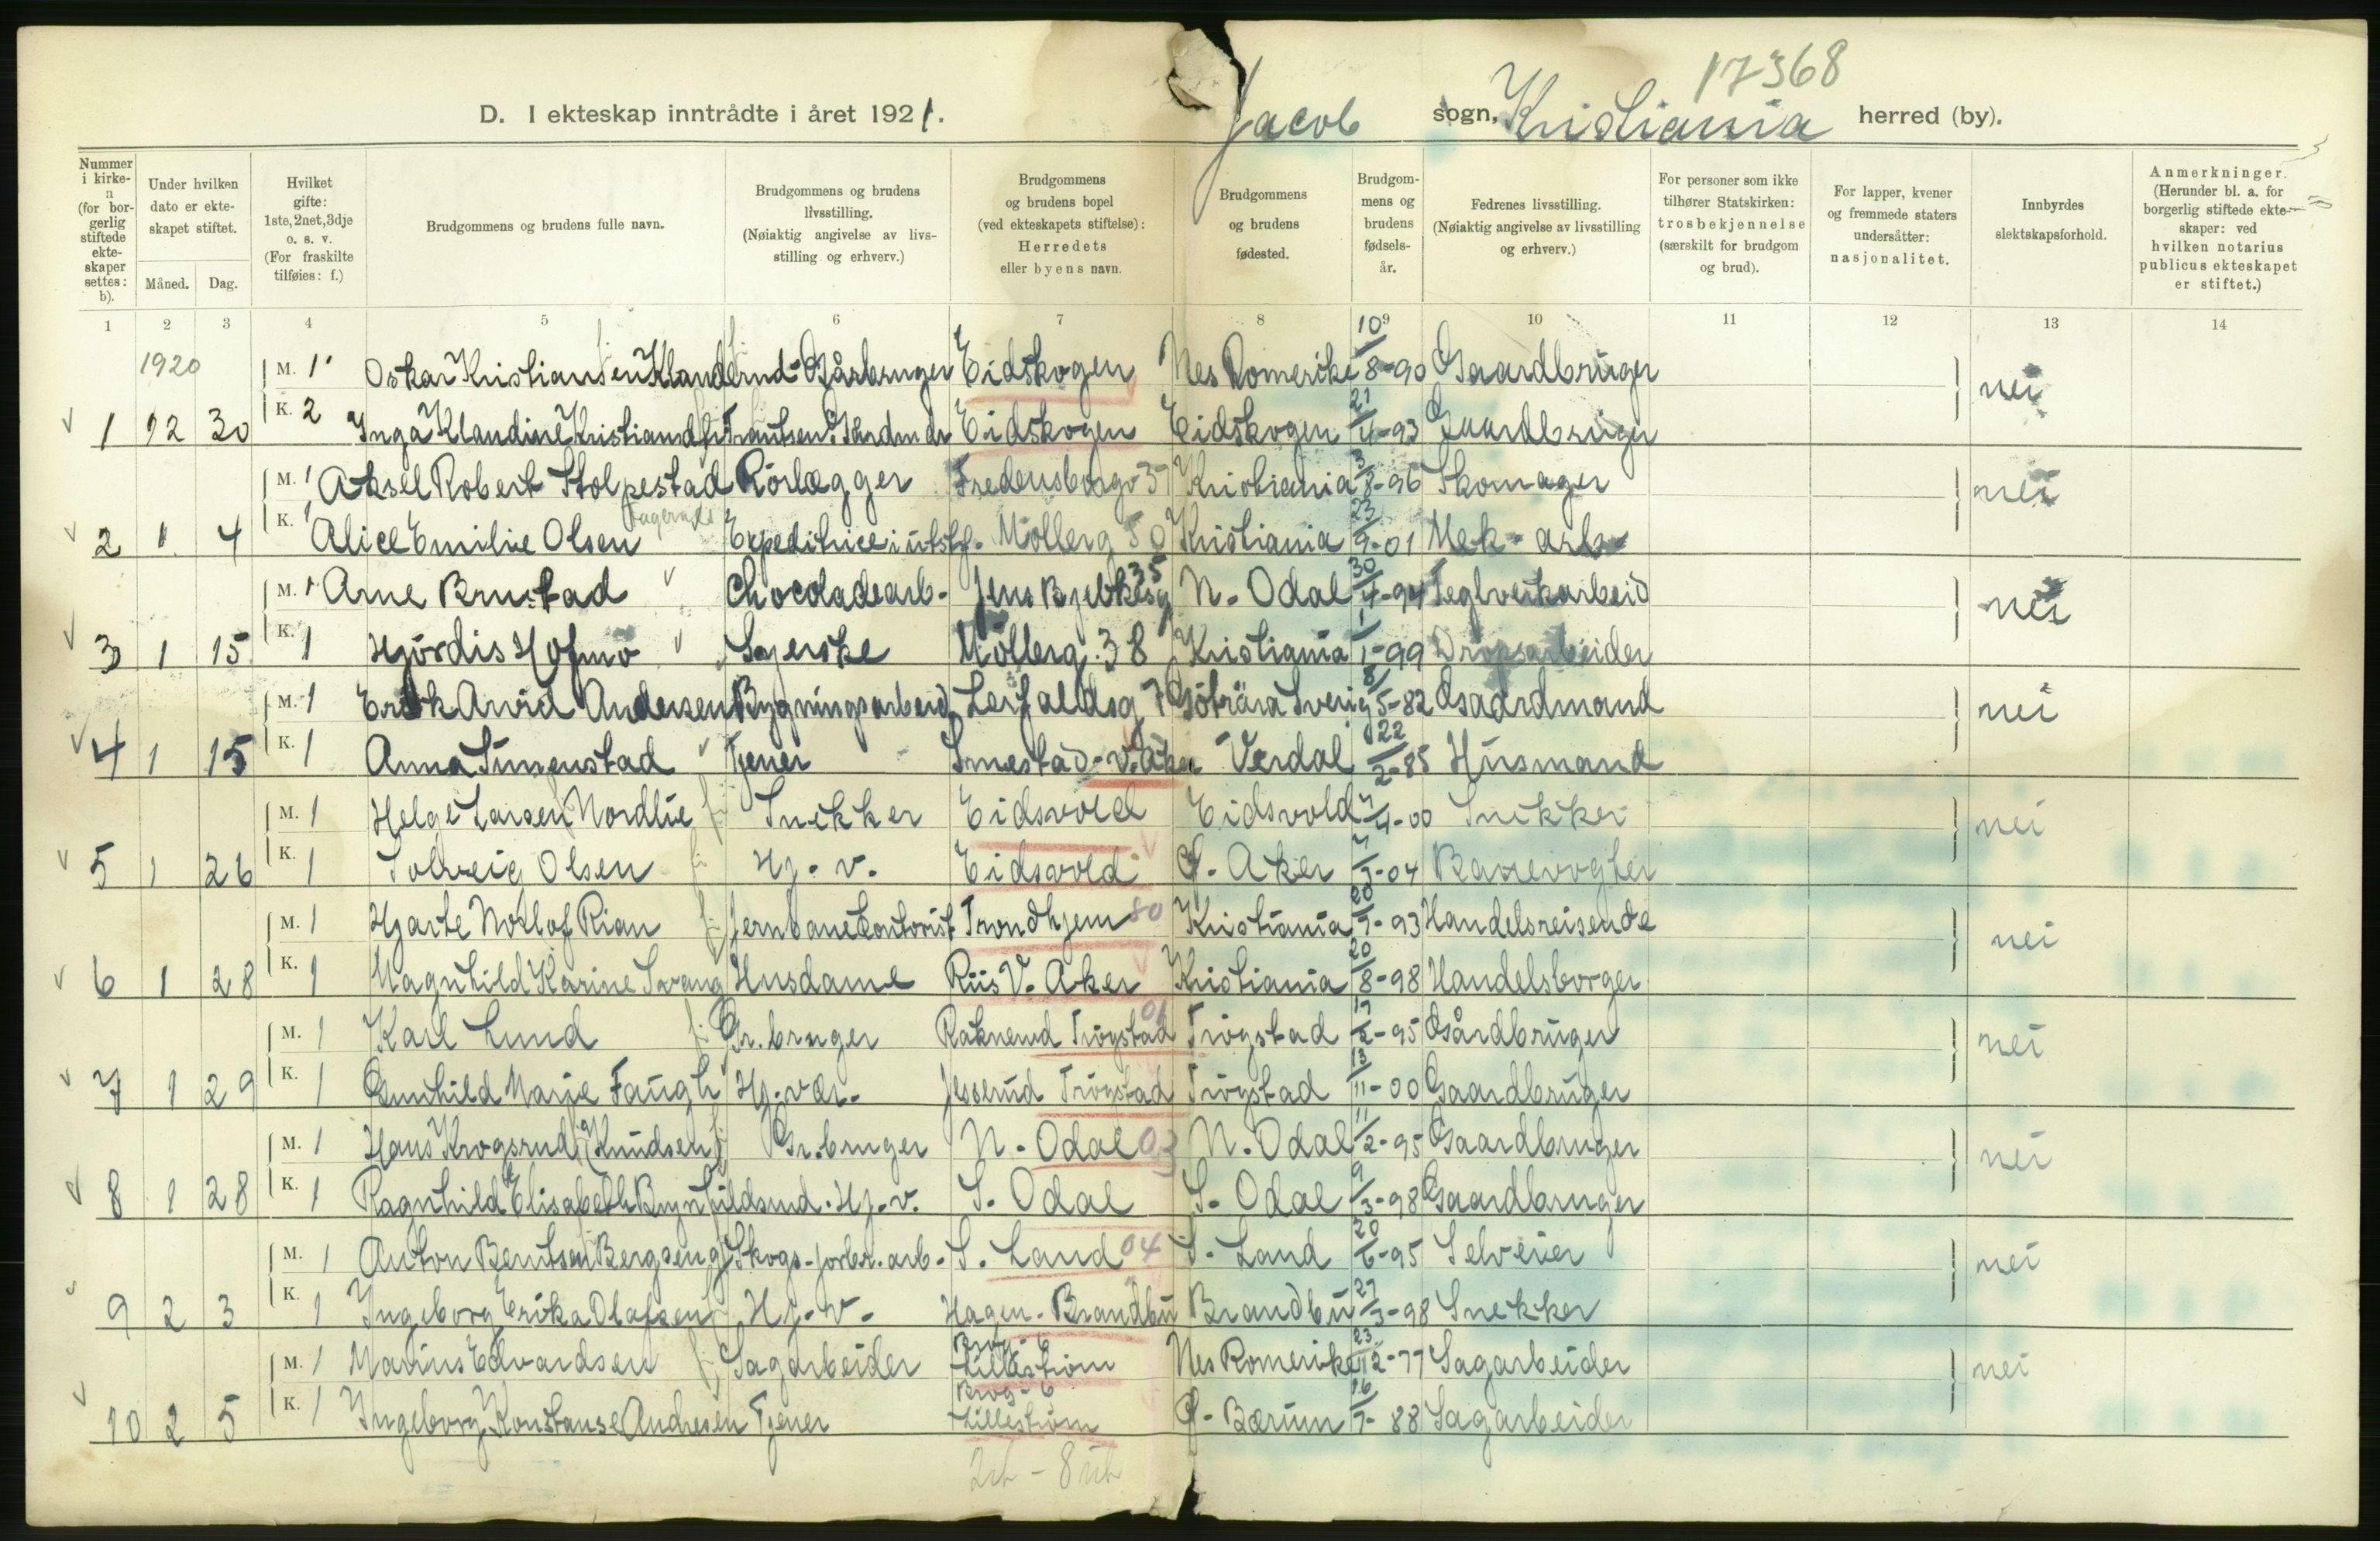 17368
D. I ekteskap inntrådte i året 1921. Jacob sogn, Kristiania herred (by).
Nummer i kirke- (for bor- gerlig stiftede ekte- skaper settes: b).
Under hvilken dato er ekte- skapet stiftet.
Måned. Dag.
Hvilket gifte: 1ste, 2net, 3dje o. s. v. (For fraskilte tilføies: f.)
Brudgommens og brudens fulle navn.
Brudgommens og brudens livsstilling. (Nøiaktig angivelse av livs- stilling og erhverv.)
Brudgommens og brudens bopel (ved ekteskapets stiftelse): Herredets eller byens navn.
Brudgommens og brudens fødested.
Brudgom- mens og brudens fødsels- år.
Fedrenes livsstilling. (Nøiaktig angivelse av livsstilling og erhverv.)
For personer som ikke tilhører Statskirken: trosbekjennelse (særskilt for brudgom og brud).
For lapper, kvener og fremmede staters undersåtter: nasjonalitet.
Innbyrdes slektskapsforhold.
Anmerkninger. (Herunder bl. a. for borgerlig stiftede ekte- skaper: ved hvilken notarius publicus ekteskapet er stiftet.)
1 2 3 4 5 6 7 8 9 10 11 12 13 14
1920 M. 1 Oskar Kristiansen Gårbruger Eidskogen Nes Romerike 10/8-90 Gaardbruger nei
1 12 30 K. 2 Inga Klaudine Eidskogen Eidskogen 21/4-93 Gaardbruger
M. 1 Aksel Robert Stolpestad Rörlægger Fredensborgv 37 Kristiania 3/8-96 Skomager nei
2 1 4 K. 1 Alice Emilie Olsen Expeditrice i Möllerg 50 Kristiania 23/9-01 Mek- arb-
M. 1 Arne Brustad Chocoladearb- Jens Bjelkesg 35 N. Odal 30/4-94 Teglverkarbeid nei
3 1 15 K. 1 Hjördis Hofmo Syerske Möllerg. 38 Kristiania 1/1-99 Dropsarbeider
M. 1 Erik Arvid Andersen Bygningsarbeid Leirfaldsg 7 Sverig 8/5-82 Gaardmand nei
4 1 15 K. 1 Anna Tjener Smestad-V. Aker Verdal 22/2-85 Husmand
M. 1 Helge Larsen Nordlie Snekker Eidsvold Eidsvold 4/4-00 Snekker nei
5 1 26 K. 1 Solveig Olsen Hj. v. Eidsvold Ø. Aker -04 Banevogter
M. 1 Rian Jernbanekontorist Trondhjem 80 Kristiania 20/9-93 Handelsreisende nei
6 1 28 K. 1 Magnhild Karine Svang Husdame Riis V. Aker Kristiania 20/8-98 Handelsborger
M. 1 Karl Lund Gr. bruger Raknerud Trögstad 01 Trögstad 19/2-95 Gårdbruger nei
7 1 29 K. 1 Gunhild Marie Faugli Hj. vær. Jesserud Trögstad Trögstad 13/11-00 Gaardbruger
M. 1 Hans Krogsrud (Knudsen) Gr. bruger N. Odal 03 N. Odal 11/2-95 Gaardbruger nei
8 1 28 K. 1 Ragnhild Elisabeth Brynhildsrud. Hj. v. S. Odal S. Odal 9/3-98 Gaardbruger
M. 1 Anton Berntsen Bergseng Skogs-jorbr. arb- S. Land 04 S. Land 20/6-95 Selveier nei
9 2 3 K. 1 Ingeborg Erika Olafsen Hj. v. Hagen. Brandbu Brandbu 27/3-98 Snekker
M. 1 Marius Edvardsen Sagarbeider Brog- 6 Lilleström Nes Romerike 23/12-77 Sagarbeider nei
10 2 5 K. 1 Ingeborg Konstanse Andresen Tjener Brog- 6 Lilleström Ø. Bærum 16/7-88 Sagarbeider